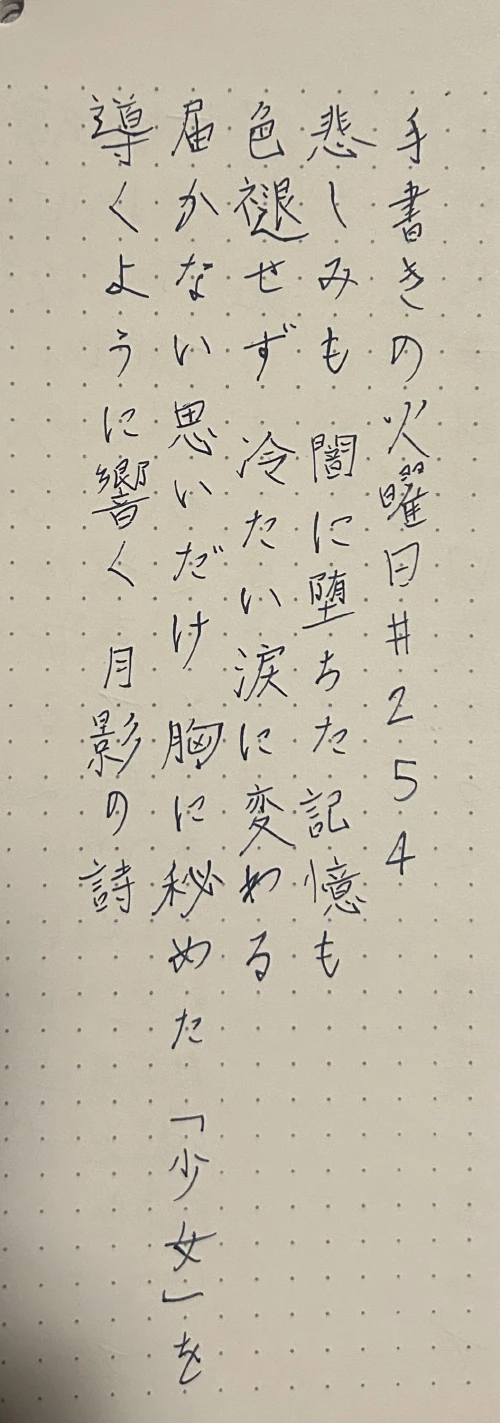 手書きの火曜日#254
悲しみも 闇に堕ちた記憶も
色褪せず 冷たい涙に変わる
届かない思いだけ 胸に秘めた 「少女」を
導くように響く 月影の詩